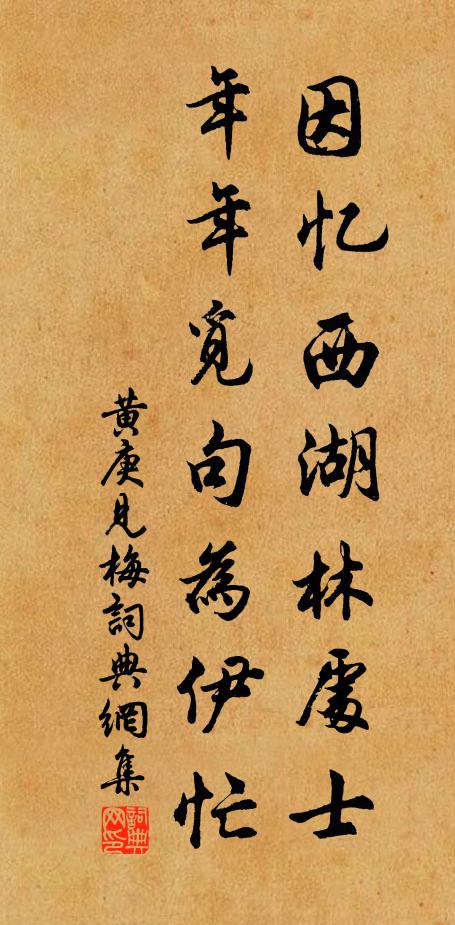 因忆西湖林處士
年年覓句為伊忙
黄庚見梅詞典網集
詞典網印